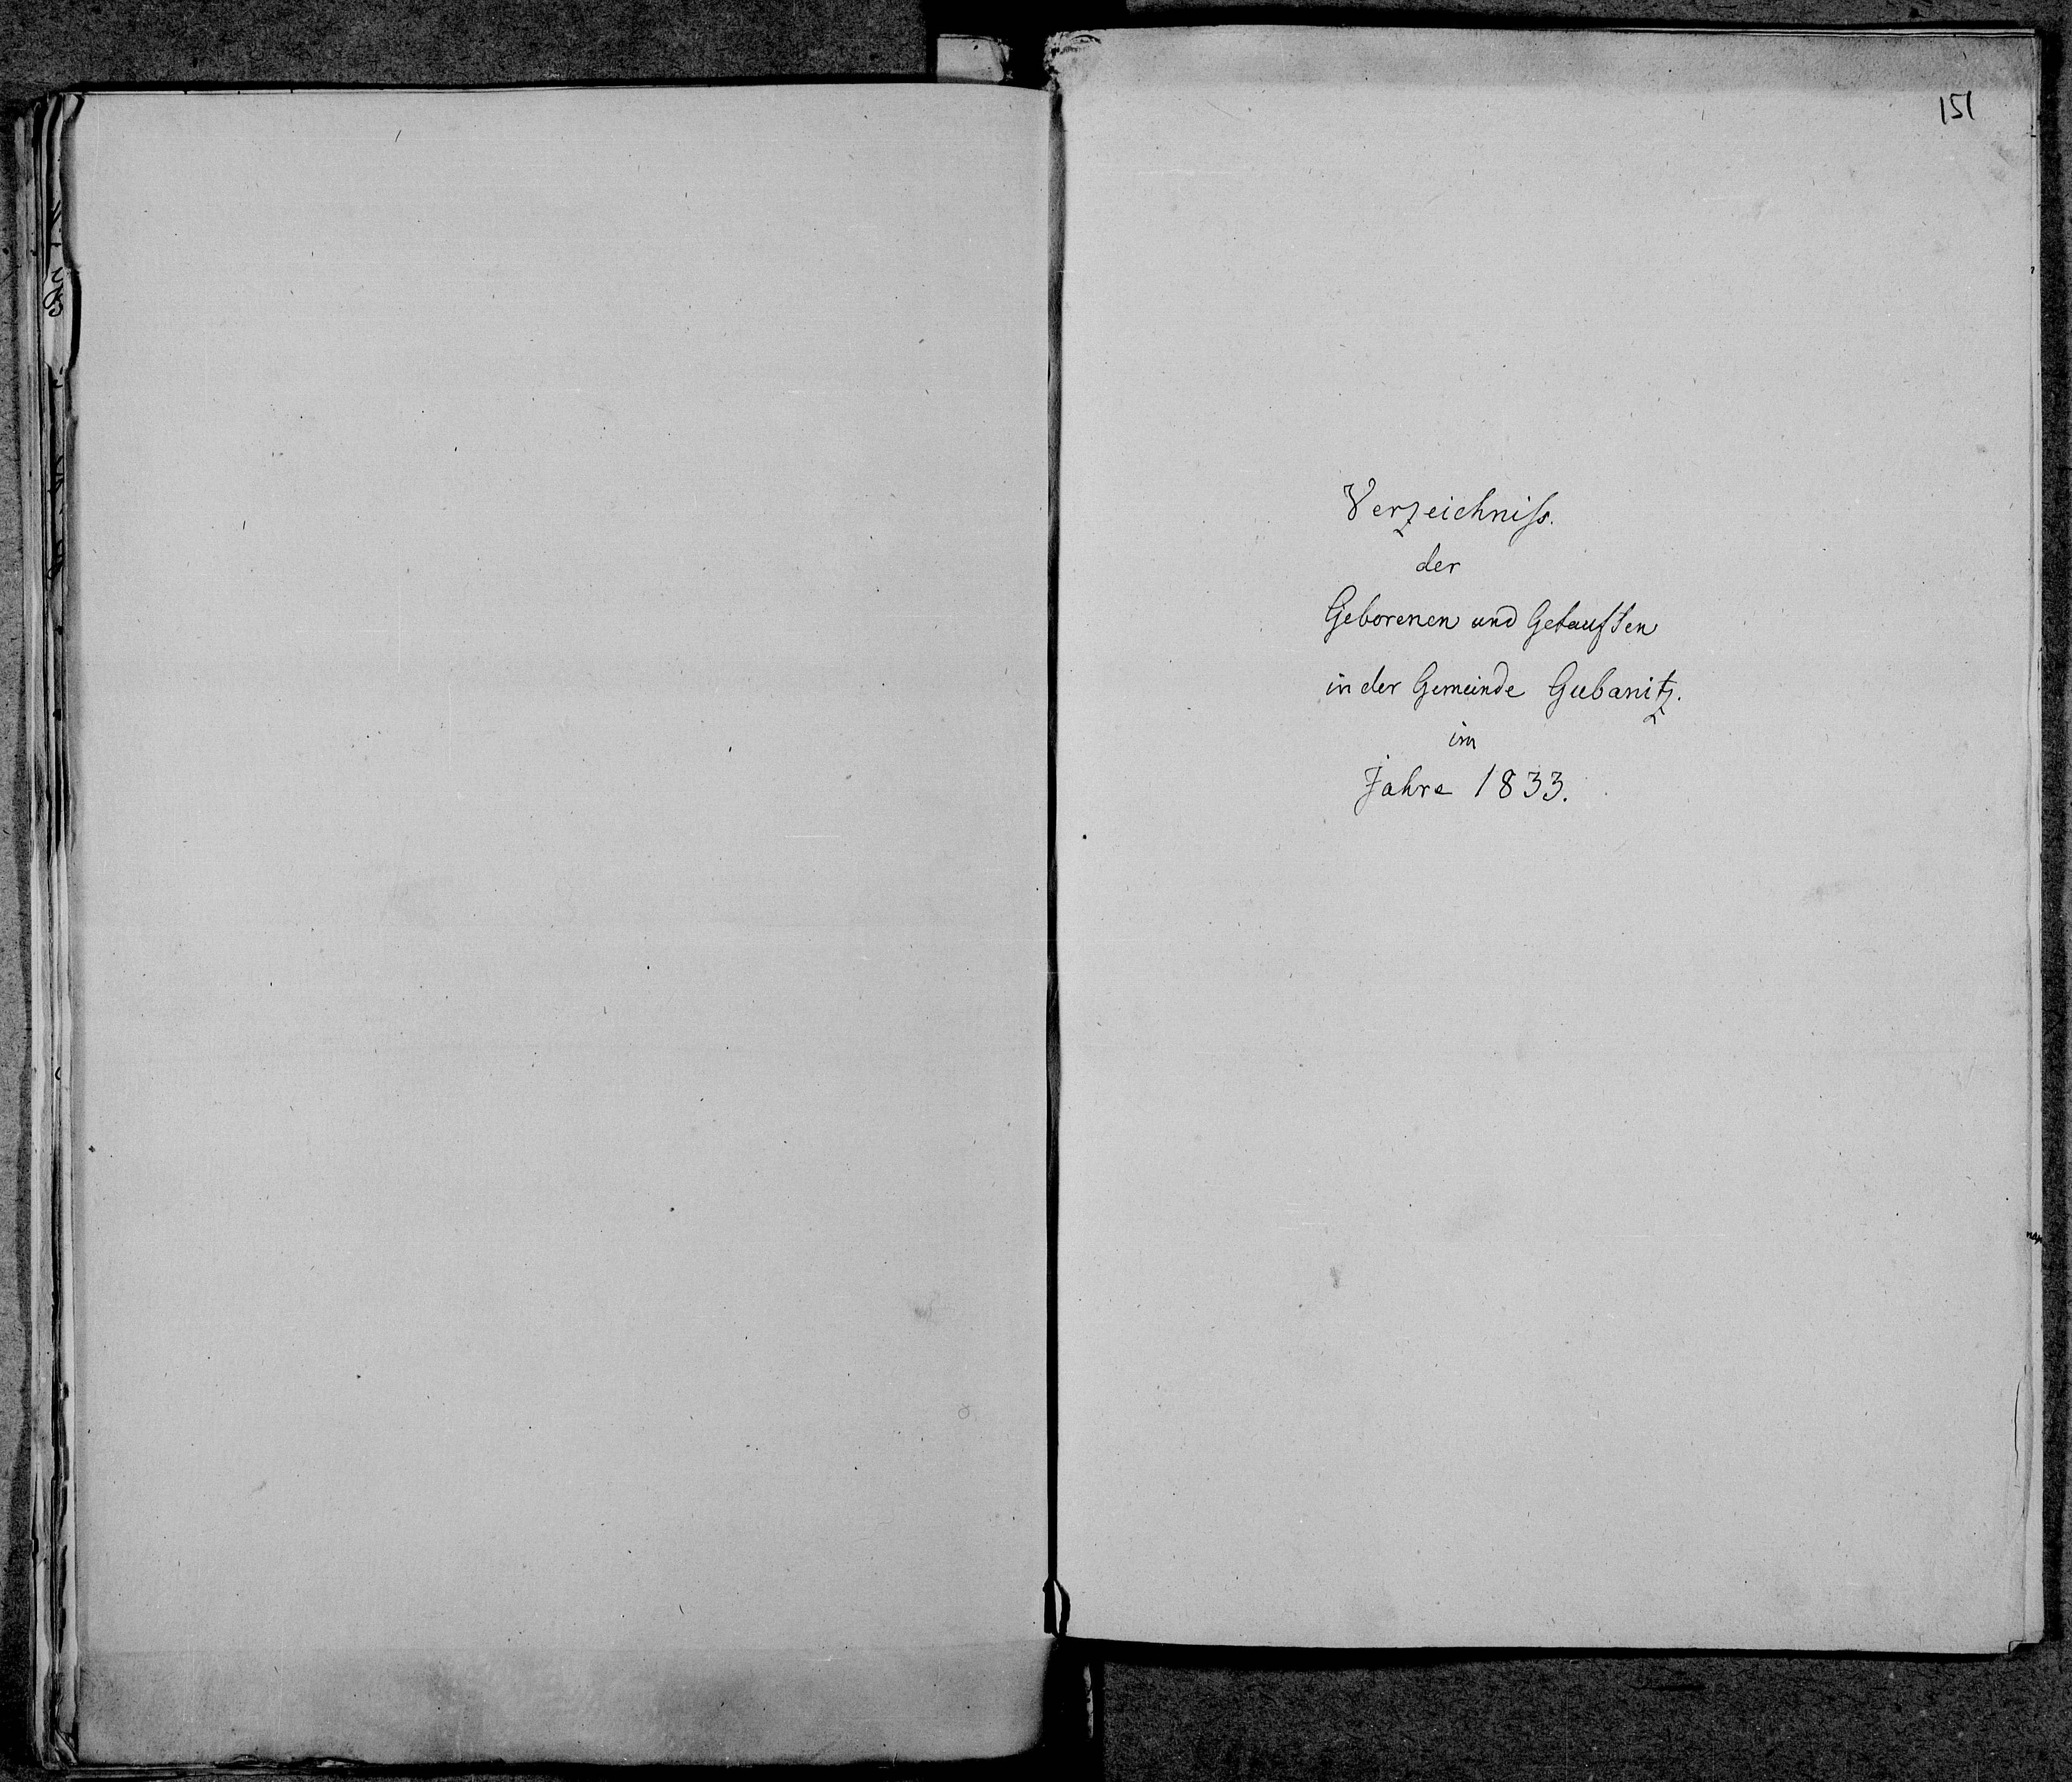 151
Verzeichniss.
der
Geborenen und Getauften
in der Gemeinde Gubanitz.
im
Jahre 1833.